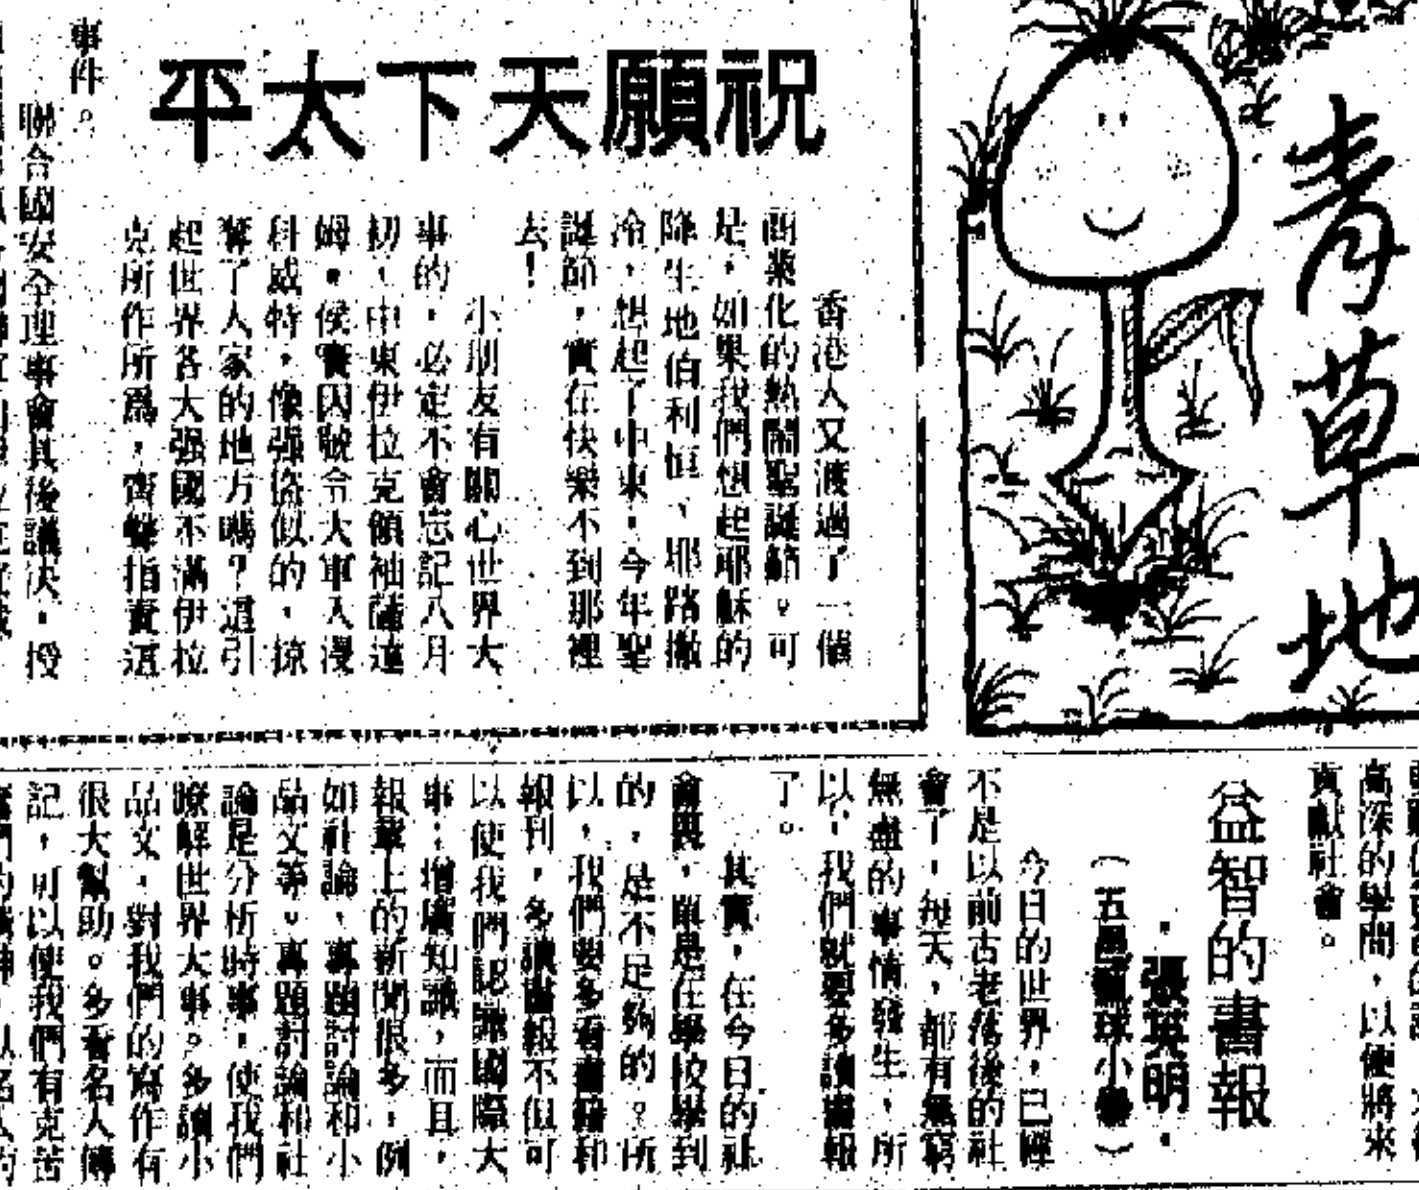 青草地
祝願天下太平
香港人又渡過了一個
商業化的熱鬧聖誕節。可
是，如果我們想起耶穌的
降生地伯利恒、耶路撒
冷，想起了中東，今年聖
誕節，實在快樂不到那裡
去！
小朋友有關心世界大
事的，必定不會忘記八月
初，中東伊拉克領袖薩達
姆·侯賽因號令大軍入侵
科威特，像强盜似的，掠
奪了人家的地方嗎？這引
起世界各大强國不滿伊拉
克所作所爲，齊聲指責這
事件。
聯合國安全理事會其後議決，授
高深的學問，以便將來
貢獻社會。
益智的書報
·張英明·
（五邑 球小學）
今日的世界，已經
不是以前古老落後的社
會了，每天，都有無窮
無盡的事情發生，所
以，我們就要多讀書報
了。
其實，在今日的社
會裏，單是在學校學到
的，是不足夠的。所
以，我們要多看書籍和
報刊，多讀書報不但可
以使我們認識國際大
事；增廣知識，而且，
報章上的新聞很多，例
如社論、專題討論和小
品文等。專題討論和社
論是分析時事，使我們
瞭解世界大事。多讀小
品文，對我們的寫作有
很大幫助。多看名人傳
記，可以使我們有克苦